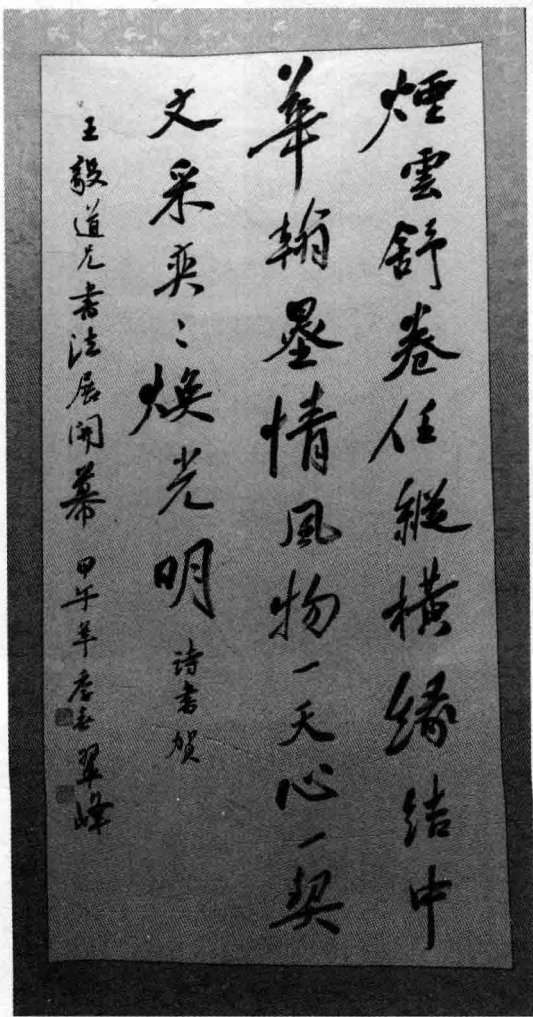 煙雲舒卷任縱橫緣結中
華翰墨情風物一天心一契
文采奕〻煥光明 詩書賀
王毅道兄書法展開幕 甲午年 翠峰